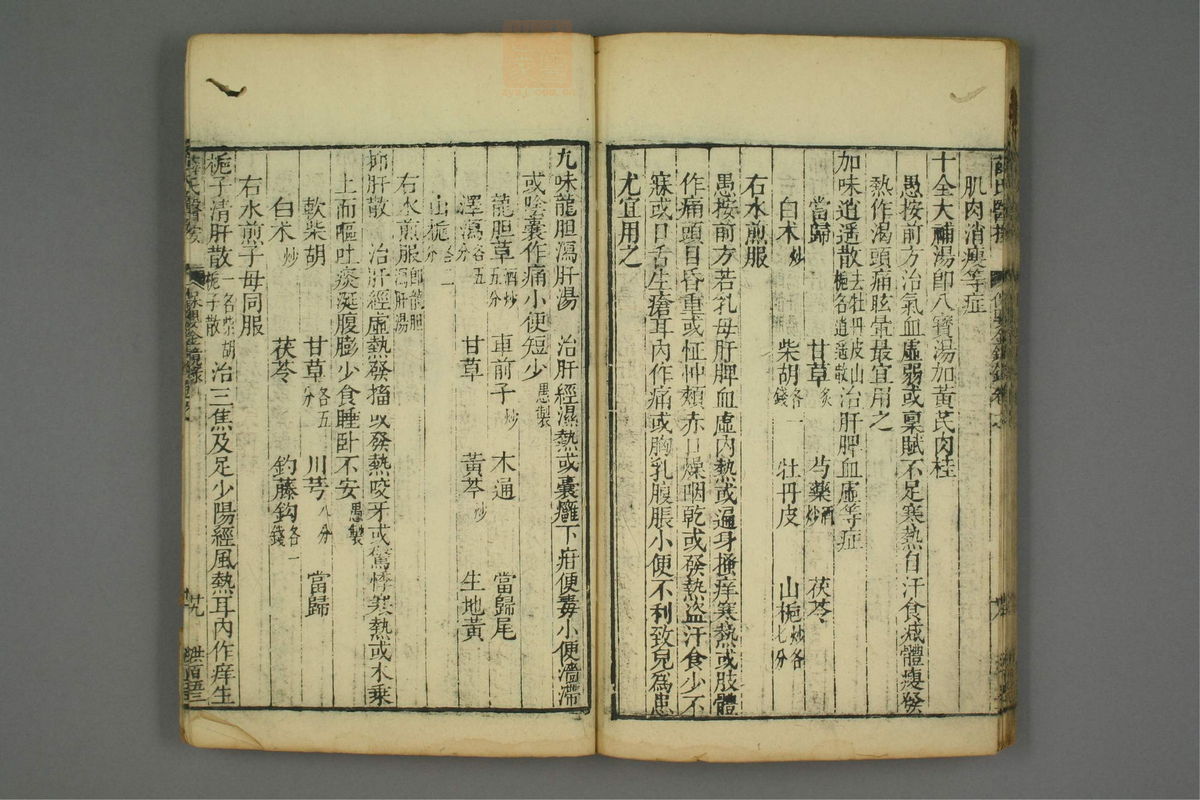 肌肉消瘦等症
十全大補湯卽八寶湯加黃芪肉桂
愚按前方治氣血虛弱或禀賦不足寒熱自汗食减體瘦發
熱作渴頭痛眩暈最宜用之
加味逍遥散去牡丹皮山梔名逍遥散治肝脾血虛等症
當歸 甘草炙 芍藥酒炒 茯苓
白术炒 柴胡各一錢 牡丹皮 山梔炒各七分
右水煎服
愚按前方若乳母肝脾血虛內熱或遍身搔痒寒熱或肢體
作痛頭目昏重或怔忡頰赤口燥咽乾或發熱盜汗食少不
寐或口舌生瘡耳內作痛或胸乳腹脹小便不利致兒為患
尤宜用之
九味龍胆瀉肝湯 治肝經濕熱或囊癰下疳便毒小便濇滯
或陰囊作痛小便短少愚製
龍胆草酒炒五分 車前子炒 木通 當歸尾
澤瀉各五分 甘草 黃芩炒 生地黃
山梔各二分
右水煎服卽龍胆瀉肝湯
抑肝散 治肝經虛熱發搐或發熱咬牙或驚悸寒熱或木乘
土而嘔吐痰涎腹膨少食睡卧不安愚製
軟柴胡 甘草各五分 川芎八分 當歸
白术炒 茯苓 釣藤鈎各一錢
右水煎子母同服
梔子清肝散一名柴胡梔子散 治三焦及足少陽經風熱耳內作痒生
薛氏醫案
廿九